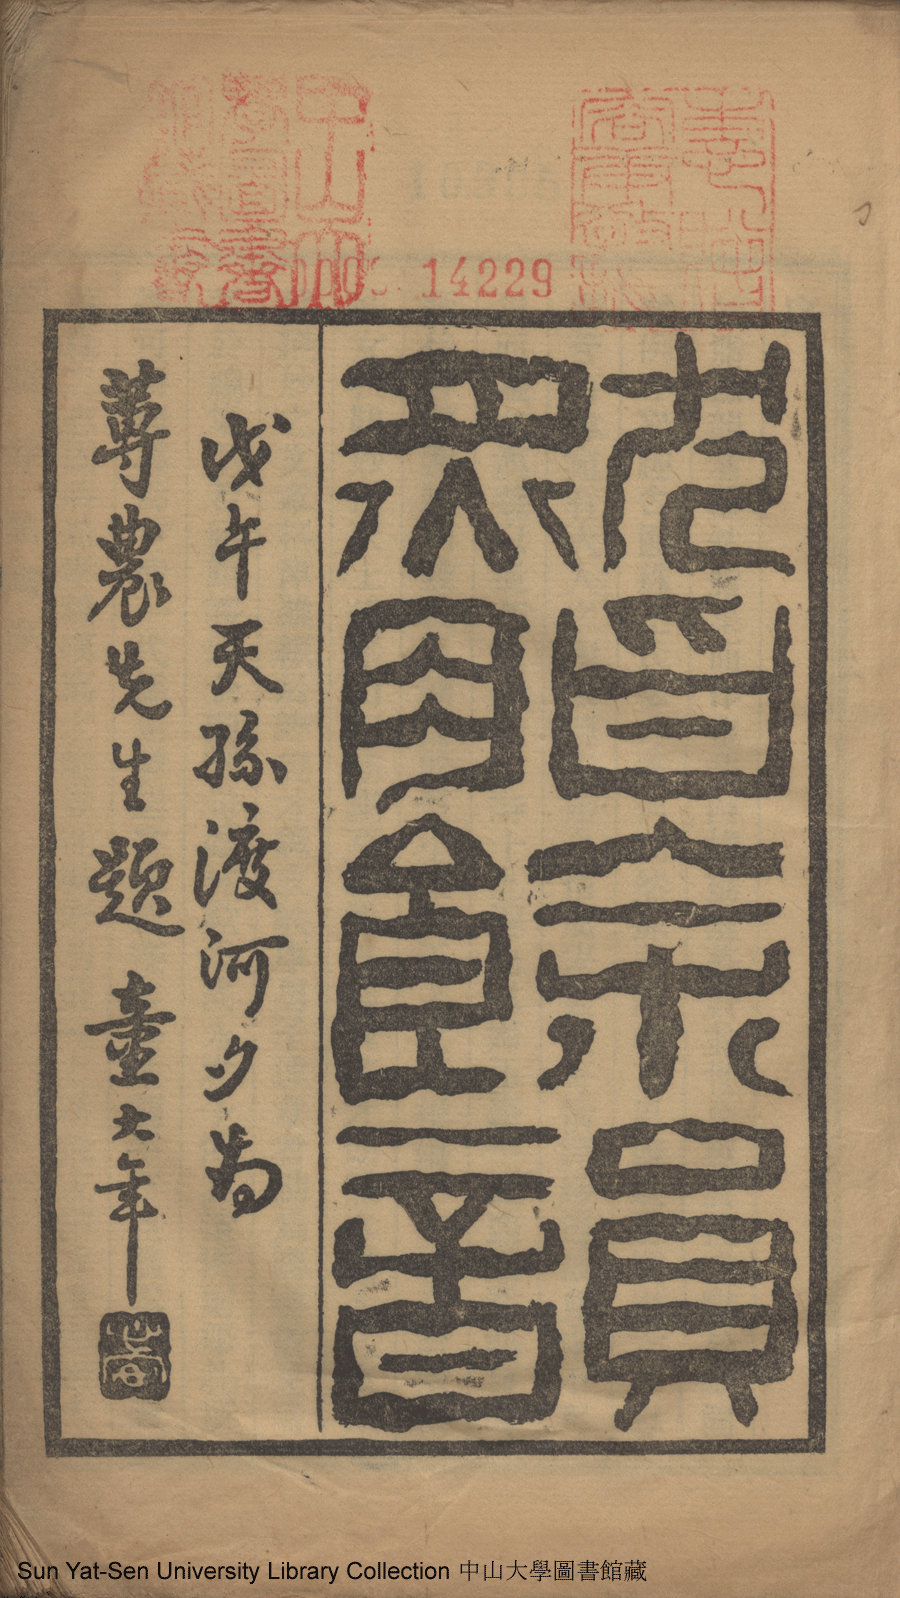 14229
然脂餘韻
戊午天孫渡河夕為
蓴農先生題 童大年
Sun Yat-Sen University Library Collection 中山大學圖書館藏